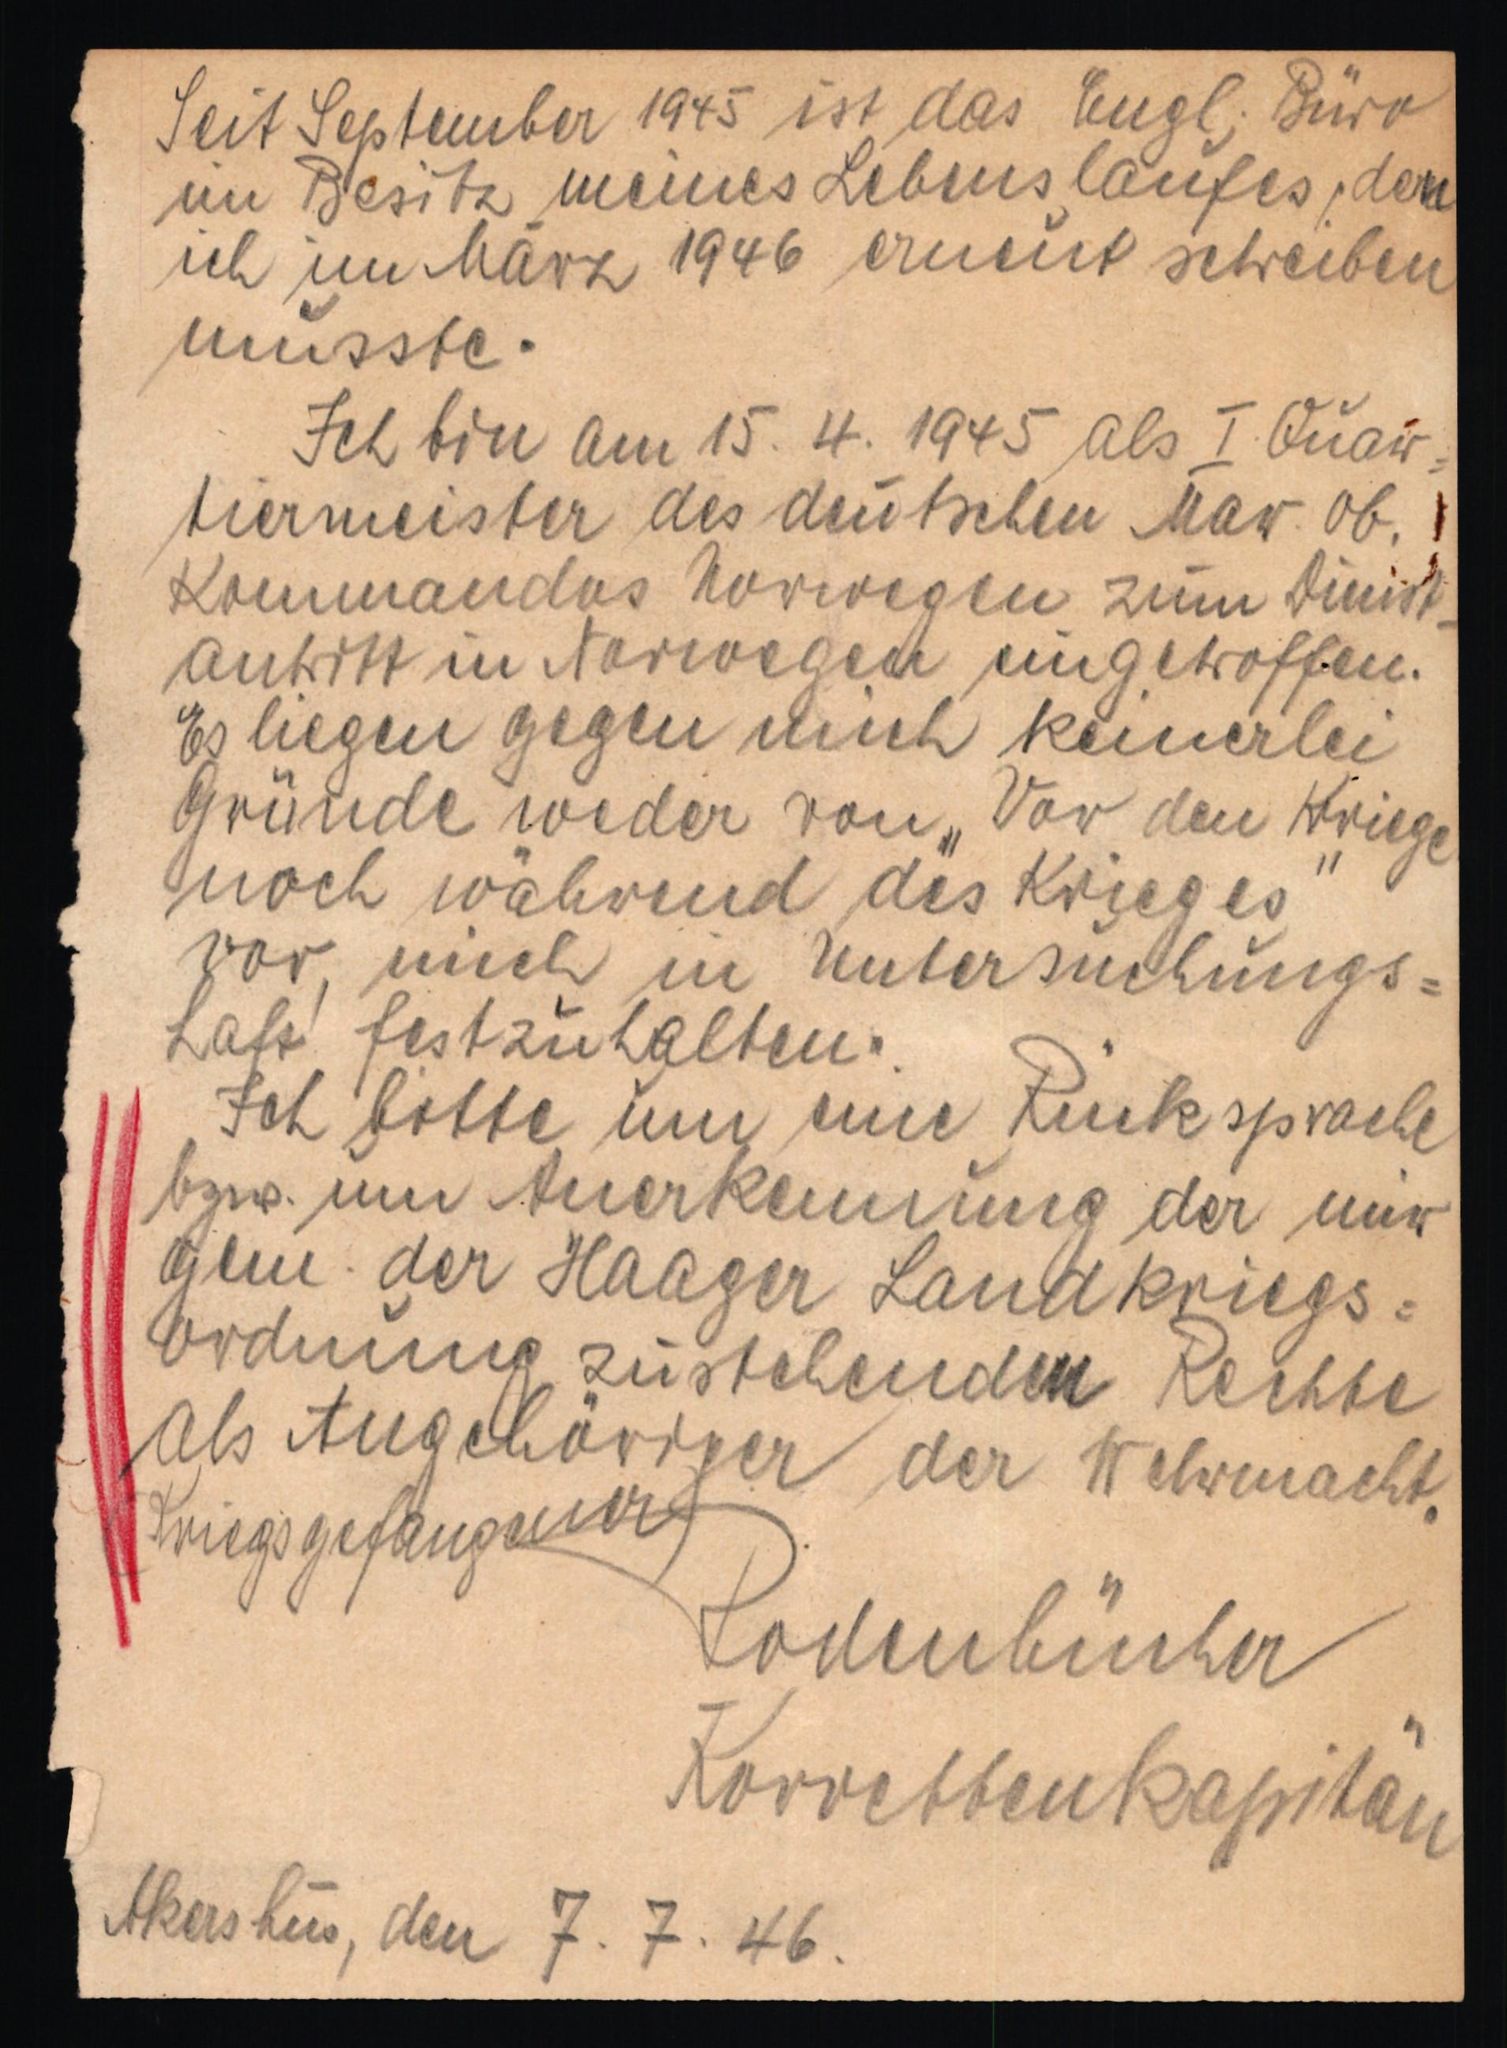 Seit September 1945 ist das Engl. Büro
im Besitz meines Lebenslaufes, den
ich im März 1946 erneut schreiben
musste.
Ich bin am 15. 4. 1945 als I. Quar=
tiermeister des deutschen Mar. Ob.
Kommandos Norwegen zum Dienst-
antritt in Norwegen eingetroffen.
Es liegen gegen mich keinerlei
Gründe weder von „Vor den Kriege
noch während " des Krieges"
vor, mich in Untersuchungs=
haft festzuhalten.
Ich bitte um eine Rücksprache
bzw. um Anerkennung der mir
gem. der Haager Landkriegs=
ordnung zustehenden Rechte
als Angehöriger der Wehrmacht.
Kriegsgefangener
Rodenbücher
Korvettenkapitän
Akershus, den 7. 7. 46.